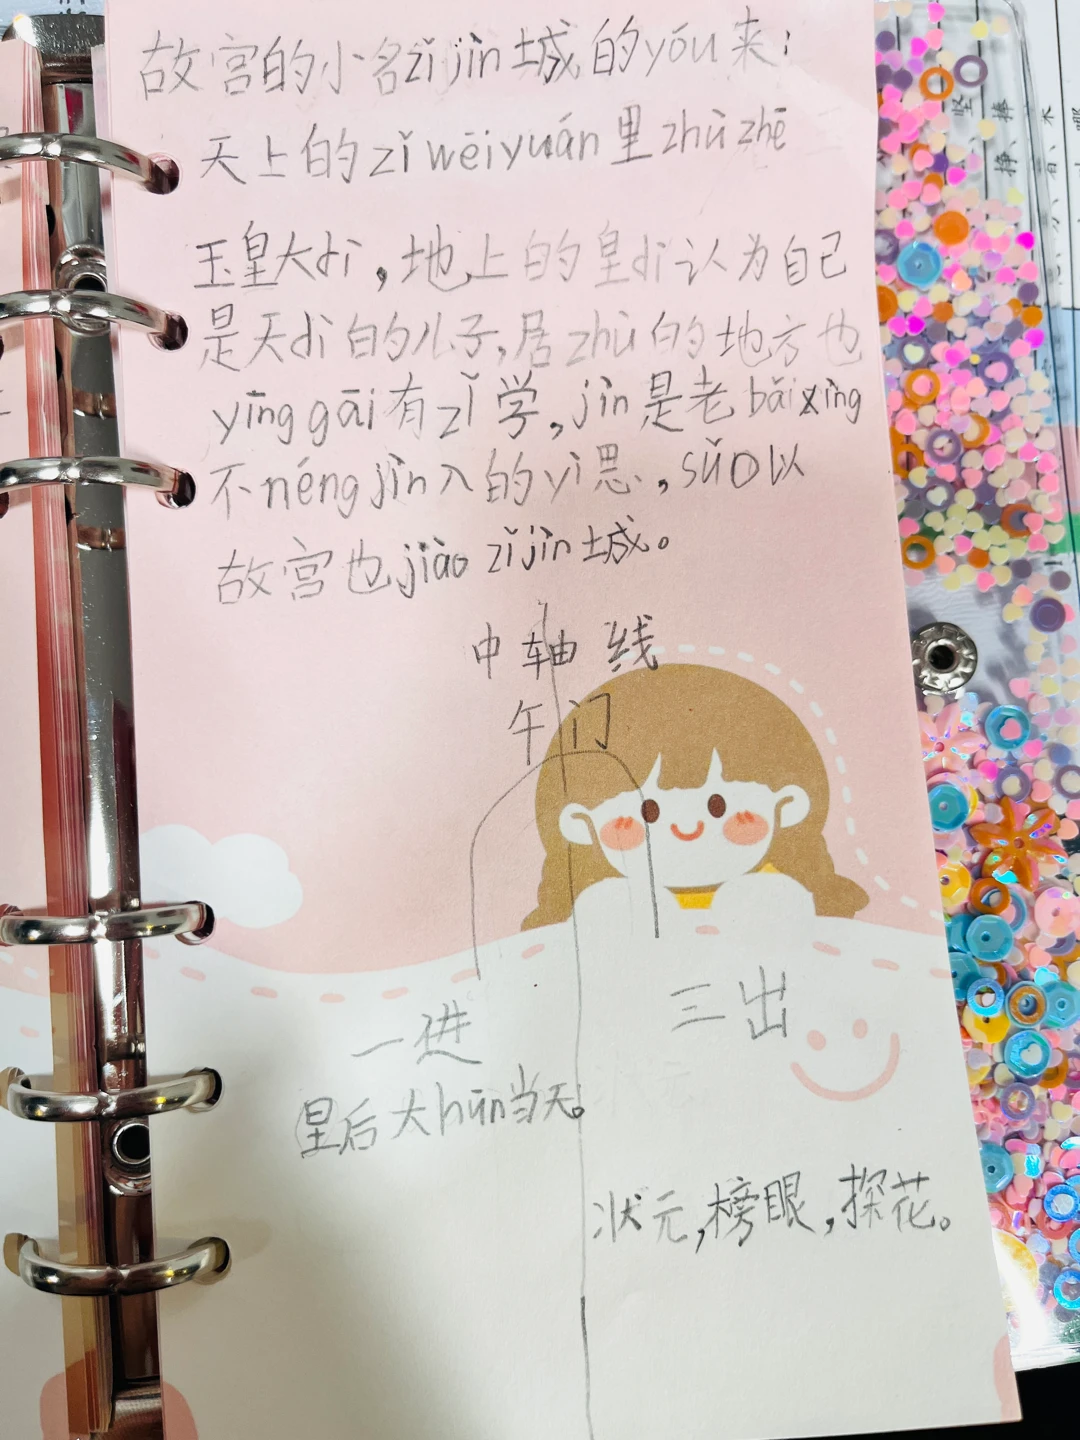 故宫的小名zǐ jìn城的yóu来：
天上的zǐ wēi yuán里zhù zhē
玉皇大dì，地上的皇dì认为自己
是天dì的儿子，居zhù的地方也
yīng gāi有zǐ学，jìn是老bǎi xìng
不néng jìn入的yì思，suǒ以
故宫也jiào zǐ jìn城。
中轴线
午门
一进
三出
皇后大hūn当天。
状元，榜眼，探花。